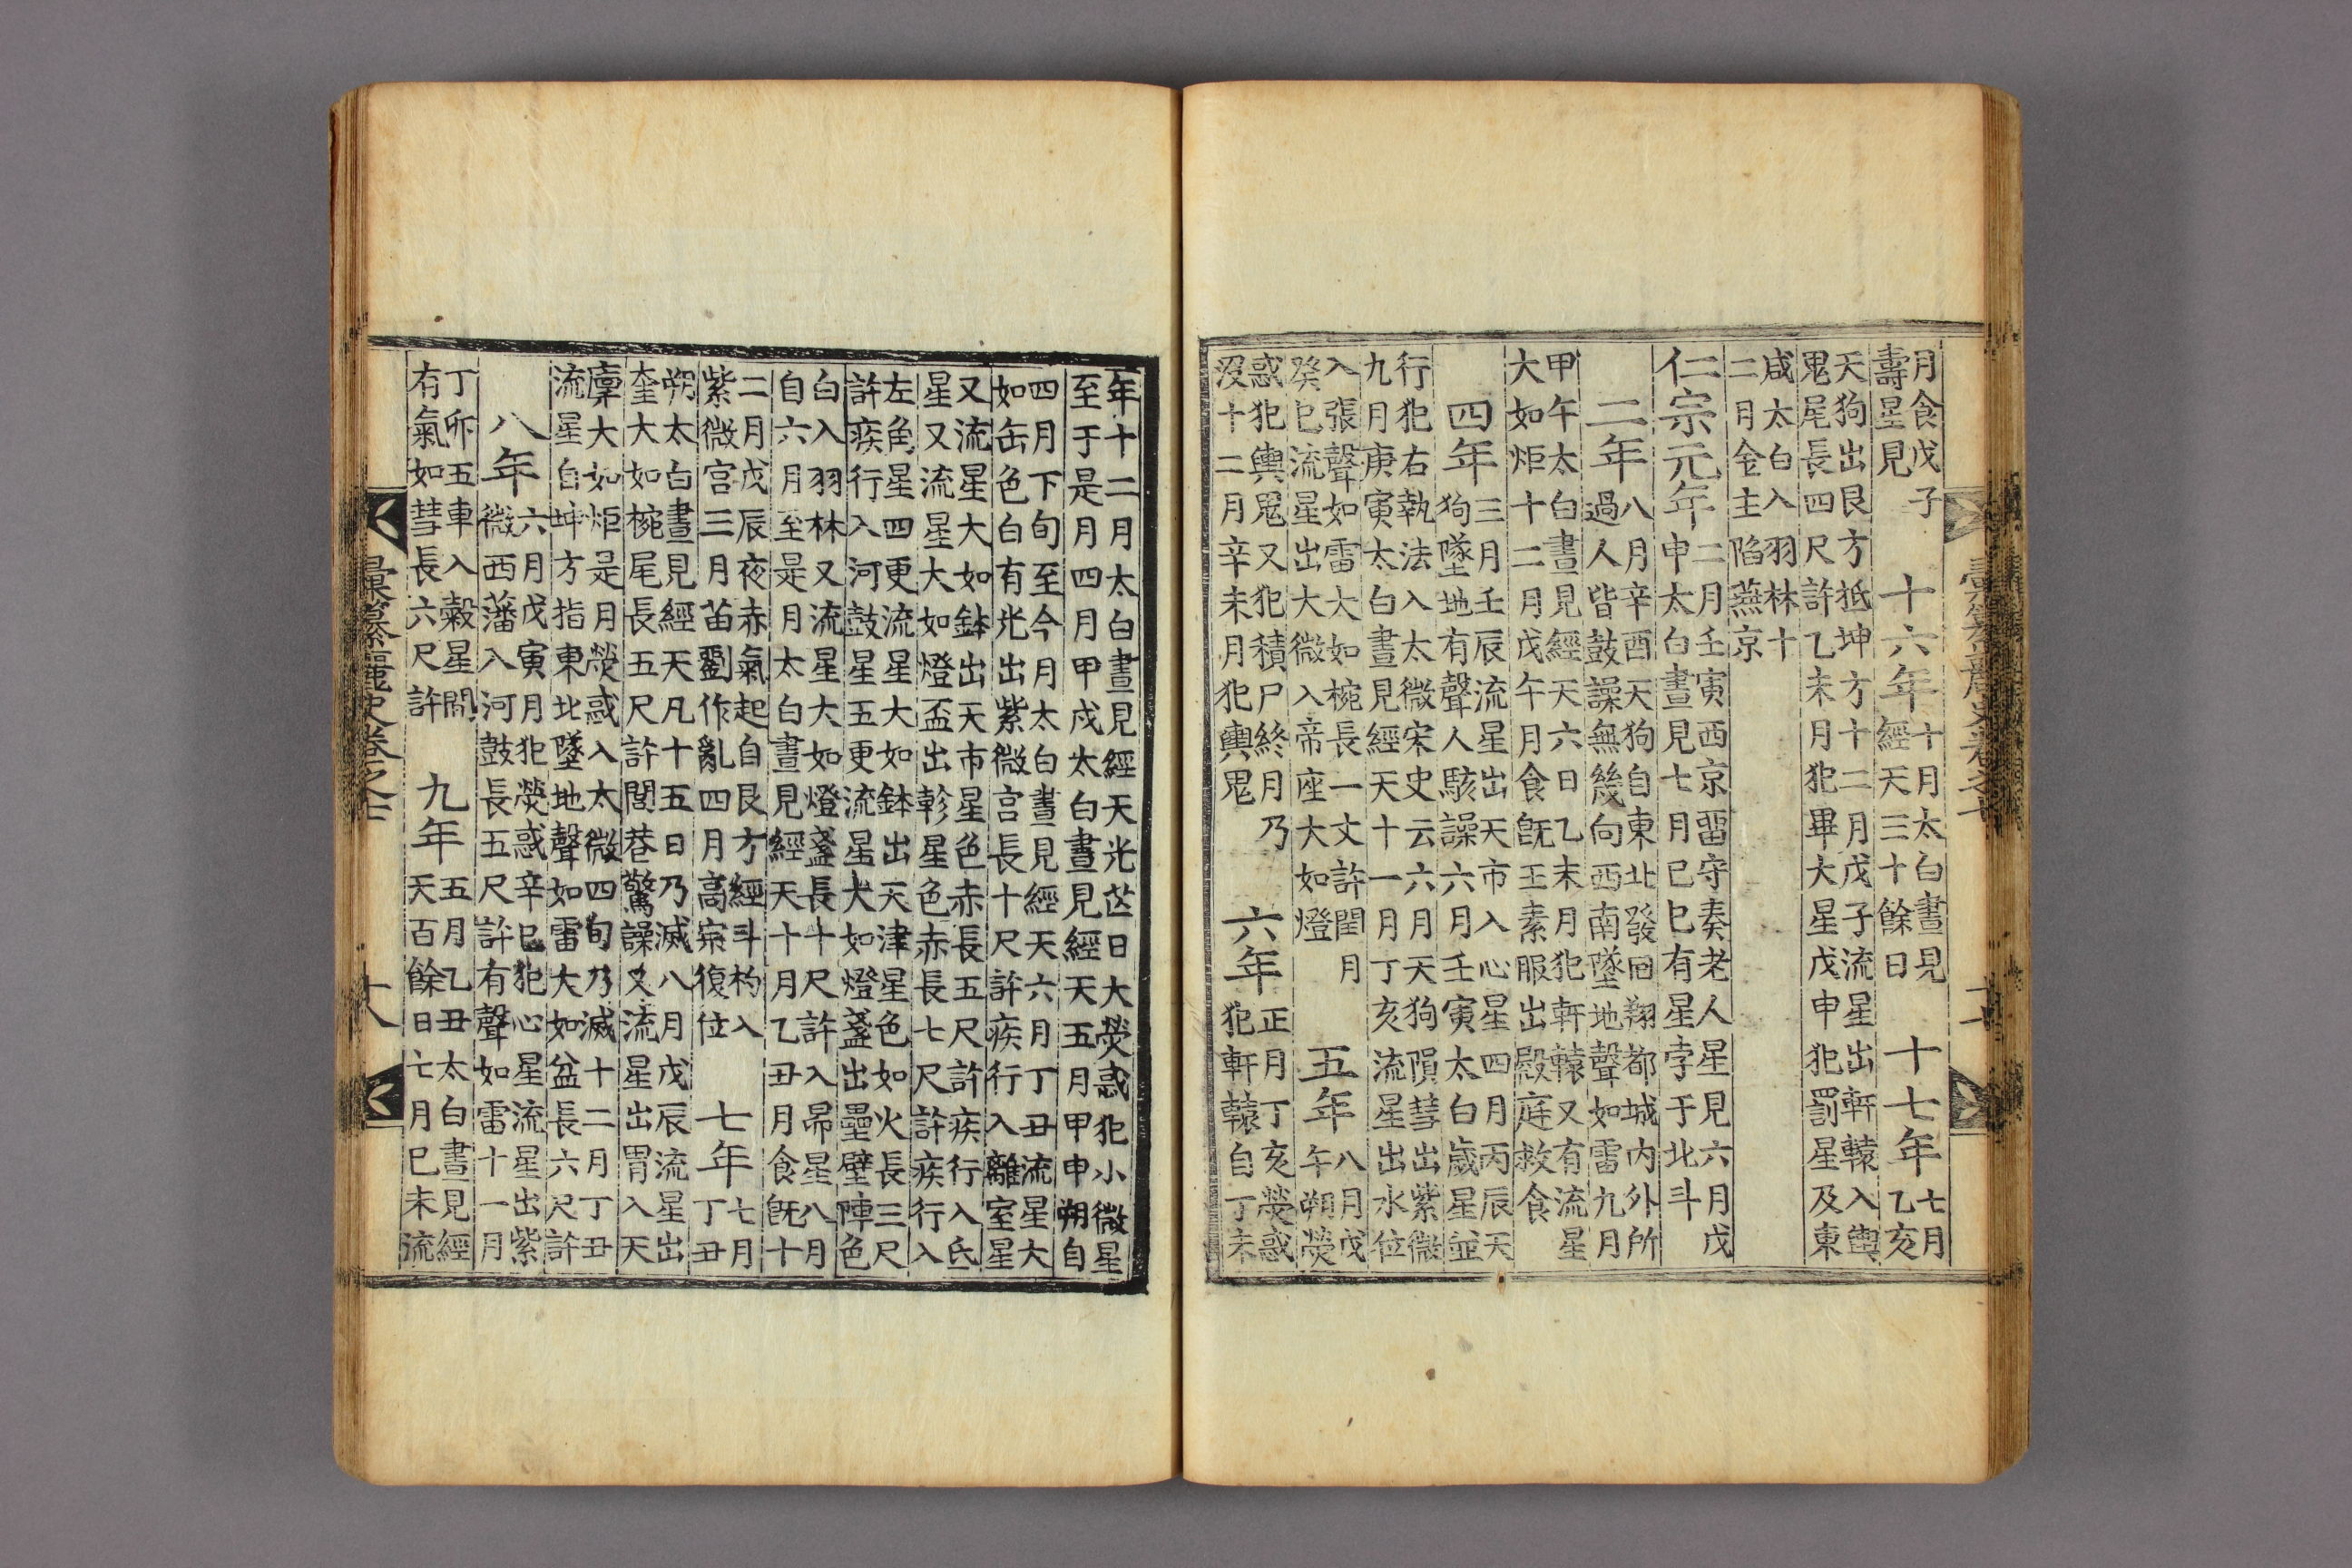 月食戊子
壽星見
十六年
十月太白晝見
經天三十餘日
十七年
七月
乙亥
天狗出艮方抵坤方十二月戊子流星出軒轅入輿
鬼尾長四尺許乙未月犯畢大星戊申犯罰星及東
咸太白入羽林十
二月金主陷燕京
仁宗元年
二月壬寅西京畱守奏老人星見六月戊
申太白晝見七月巳巳有星孛于北斗
二年
八月辛酉天狗自東北發囘翔都城內外所
過人皆鼓譟無幾向西南墜地聲如雷九月
甲午太白晝見經天六日乙未月犯軒轅又有流星
大如炬十二月戊午月食旣王素服出殿庭救食
四年
三月壬辰流星出天市入心星四月丙辰天
狗墜地有聲人駭譟六月壬寅太白歲星並
行犯右執法入太微宋史云六月天狗隕彗出紫微
九月庚寅太白晝見經天十一月丁亥流星出水位
入張聲如雷大如椀長一丈許閏月
癸巳流星出大微入帝座大如燈
五年
八月戊
午朔熒
惑犯輿鬼又犯積尸終月乃
沒十二月辛未月犯輿鬼
六年
正月丁亥熒惑
犯軒轅自丁未
年十二月太白晝見經天光芒日大熒惑犯小微星
至于是月四月甲戍太白晝見經天五月甲申朔自
四月下旬至今月太白晝見經天六月丁丑流星大
如缶色白有光出紫微宮長十尺許疾行入離室星
又流星大如鉢出天市星色赤長五尺許疾行入氐
星又流星大如燈盃出軫星色赤長七尺許疾行入
左角星四更流星大如鉢出天津星色如火長三尺
許疾行入河鼓星五更流星大如燈盞出壘壁陣色
白入羽林又流星大如燈盞長十尺許入昴星八月
自六月至是月太白晝見經天十月乙丑月食旣十
二月戊辰夜赤氣起自艮方經斗杓入
紫微宮三月苗劉作亂四月高宗復位
七年
七月
丁丑
朔太白晝見經天凡十五日乃滅八月戊辰流星出
奎大如椀尾長五尺許閭巷驚譟又流星出胃入天
廩大如炬是月熒惑入太微四旬乃滅十二月丁丑
流星自坤方指東北墜地聲如雷大如盆長六尺許
八年
六月戊寅月犯熒惑辛巳犯心星流星出紫
微西藩入河鼓長五尺許有聲如雷十一月
丁卯五車入穀星間
有氣如彗長六尺許
九年
五月乙丑太白晝見經
天百餘日七月巳未流
彙纂麗史卷之七
十八